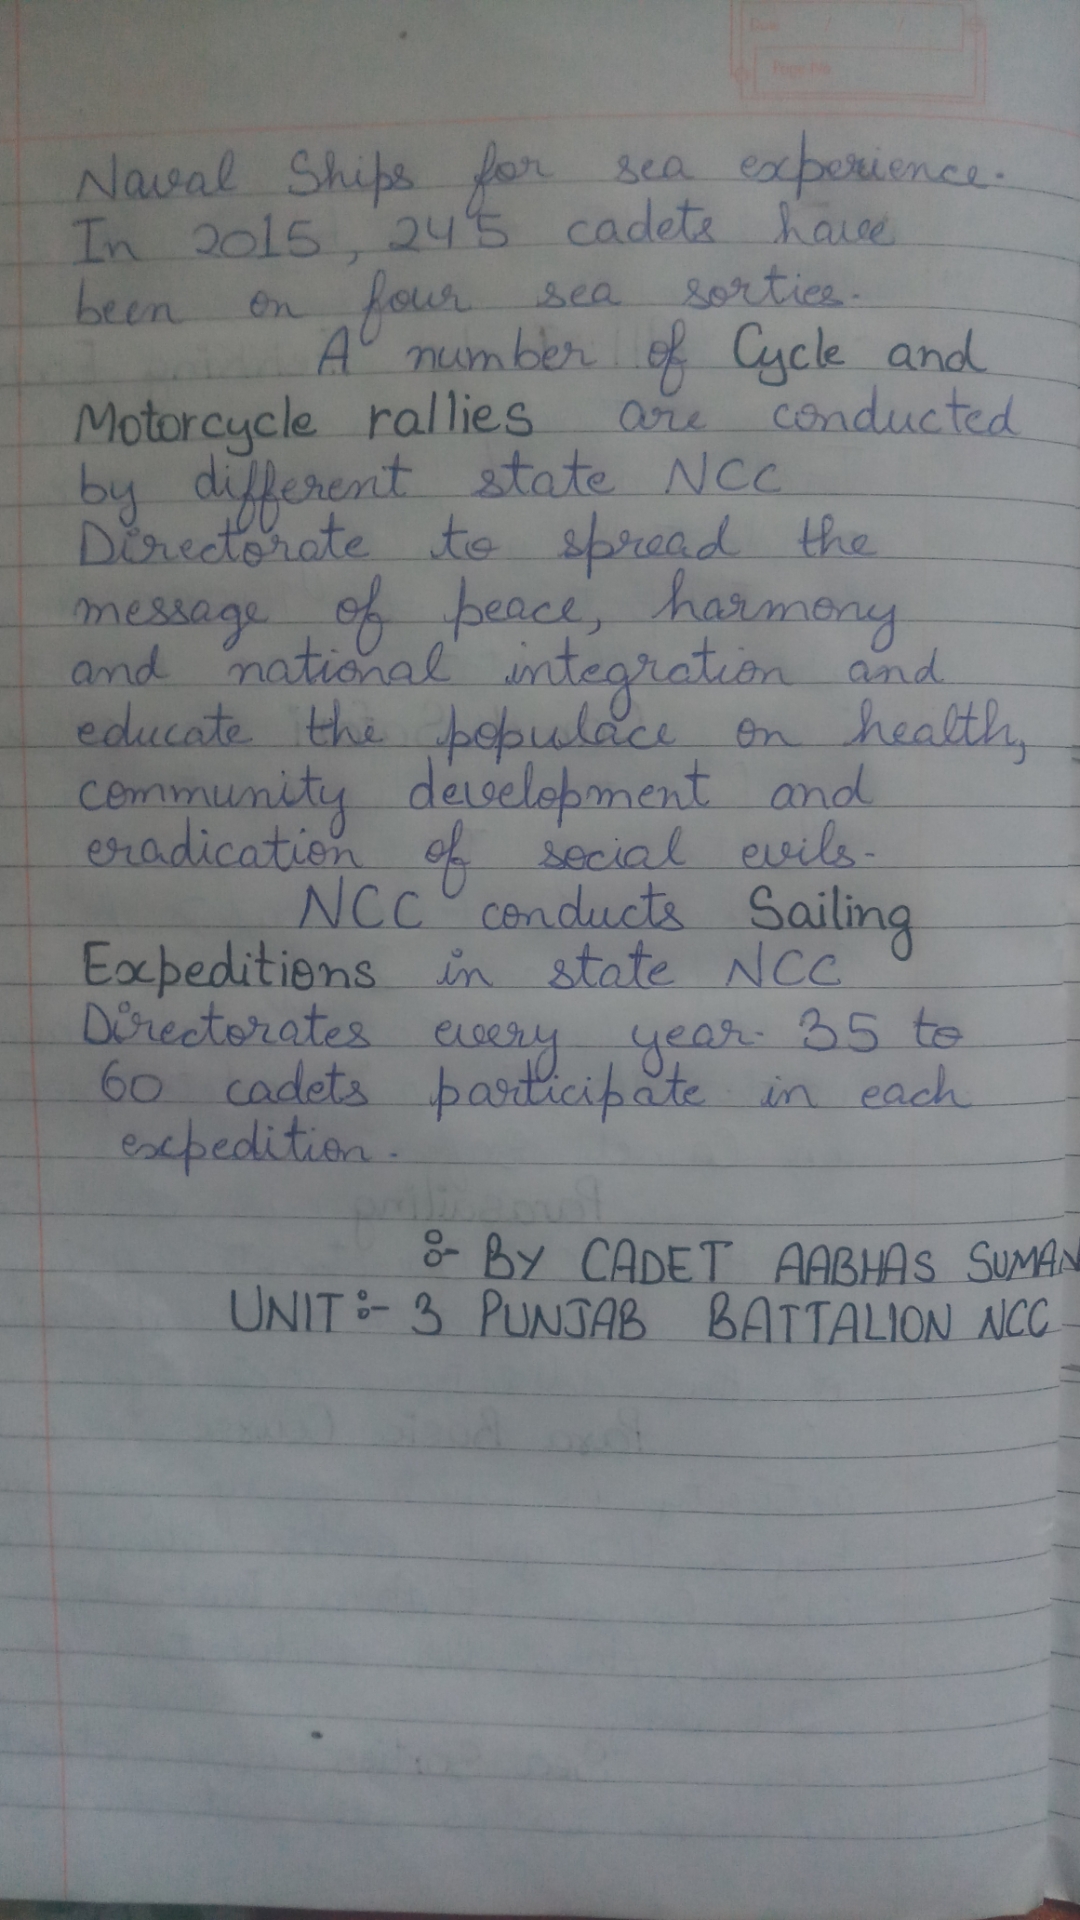 Date / /
Page No
Naval Ships for sea experience.
In 2015, 245 cadets have
been on four sea sorties.
A number of Cycle and
Motorcycle rallies are conducted
by different state NCC
Directorate to spread the
message of peace, harmony
and national integration and
educate the populace on health,
community development and
eradication of social evils.
NCC conducts Sailing
Expeditions in state NCC
Directorates every year. 35 to
60 cadets participate in each
expedition.
:- BY CADET AABHAS SUMAN
UNIT :- 3 PUNJAB BATTALION NCC